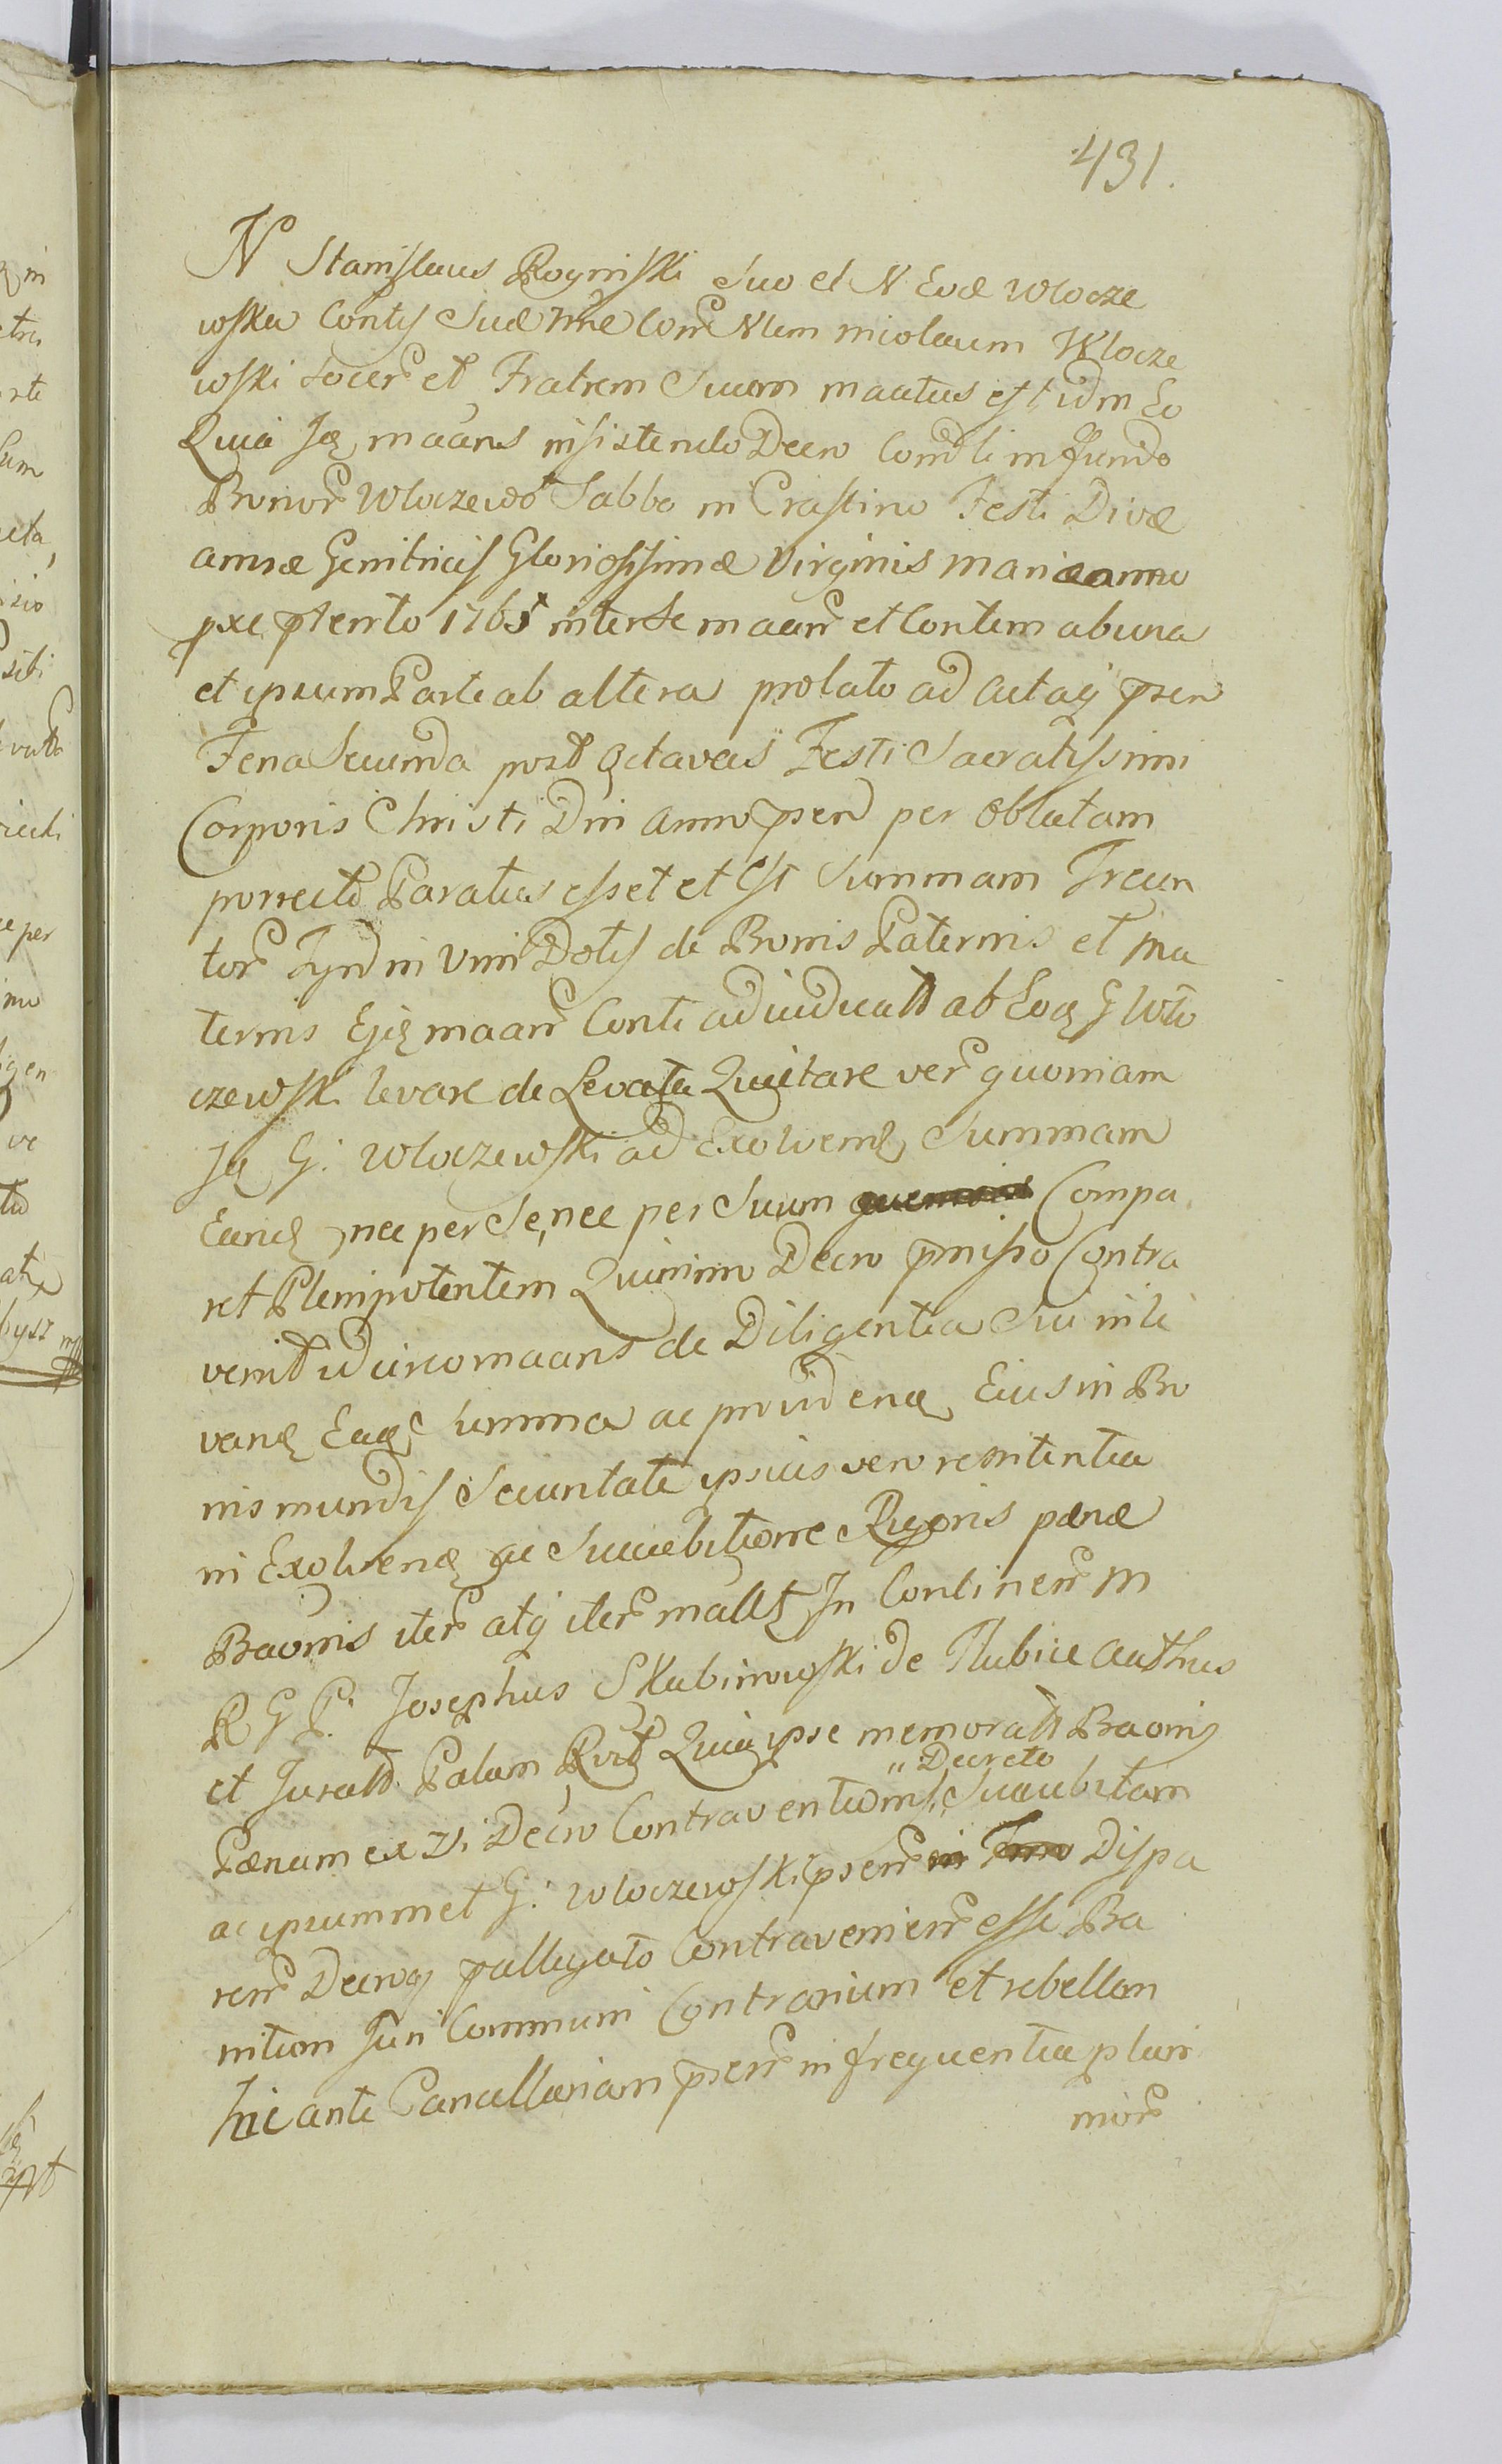 431.
N Stanislaus Roginski suo et N Evæ Wlocze
wska Contis Suæ nne Com Nlem nicolaum Wlocze
wski socer et Fratrem Suum maatus est idm Eo
Quia Ie maans insistendo Decro Comdli in fundo
Bonor Wloczewo Sabbo in Crastino Festi Divæ
annæ Genitricis Gloriosissimæ Virginis mariæ anno
pxe ptento 1765 inter se maan et Contem ab una
et ipsum Parte ab altera prolato ad actaq psen
Feria Secunda post Octavas Festi Sacratissimi
Corporis Christi Dni anno psen per Oblatam
porrecto Paratus esset et Est Summam Trecen
tor Tynf in Vim Dotis de Bonis Paternis et Ma
ternis Ejq maan Conti adiudicatt ab Eoq G Wło
czewski levare de Levata Quietare ver quoniam
Ie G. Wloczewski ad Exolvend Summam
Eand nec per Se, nec per Suum Compa
ret Plenipotentem Quinimo Decro pmisso Contra
venit idcirco maans de Diligentia Sui in le
vand Eaq Summa ac providend Eius in Bo
nis mundis Securitate ipsius vero renitentia
in Exolvend ac Succubitione Rigoris pænæ
Baonis iter atq iter mallt In Continen M
R G P. Josephus Skubinowski de Rubice authus
et Juratt Palam Rvit Quia ipse memoratt Baonis
Pænam ex vi Decro Contraventionis "Decreto Succubitam
ac ipsummet G. Wloczewski psen in Dispa
ren Decroq pallegato Contravenien esse Ba
nitum Juri Communi Contrarium et rebellem
hic ante Cancellariam psen in frequentia pluri
mor